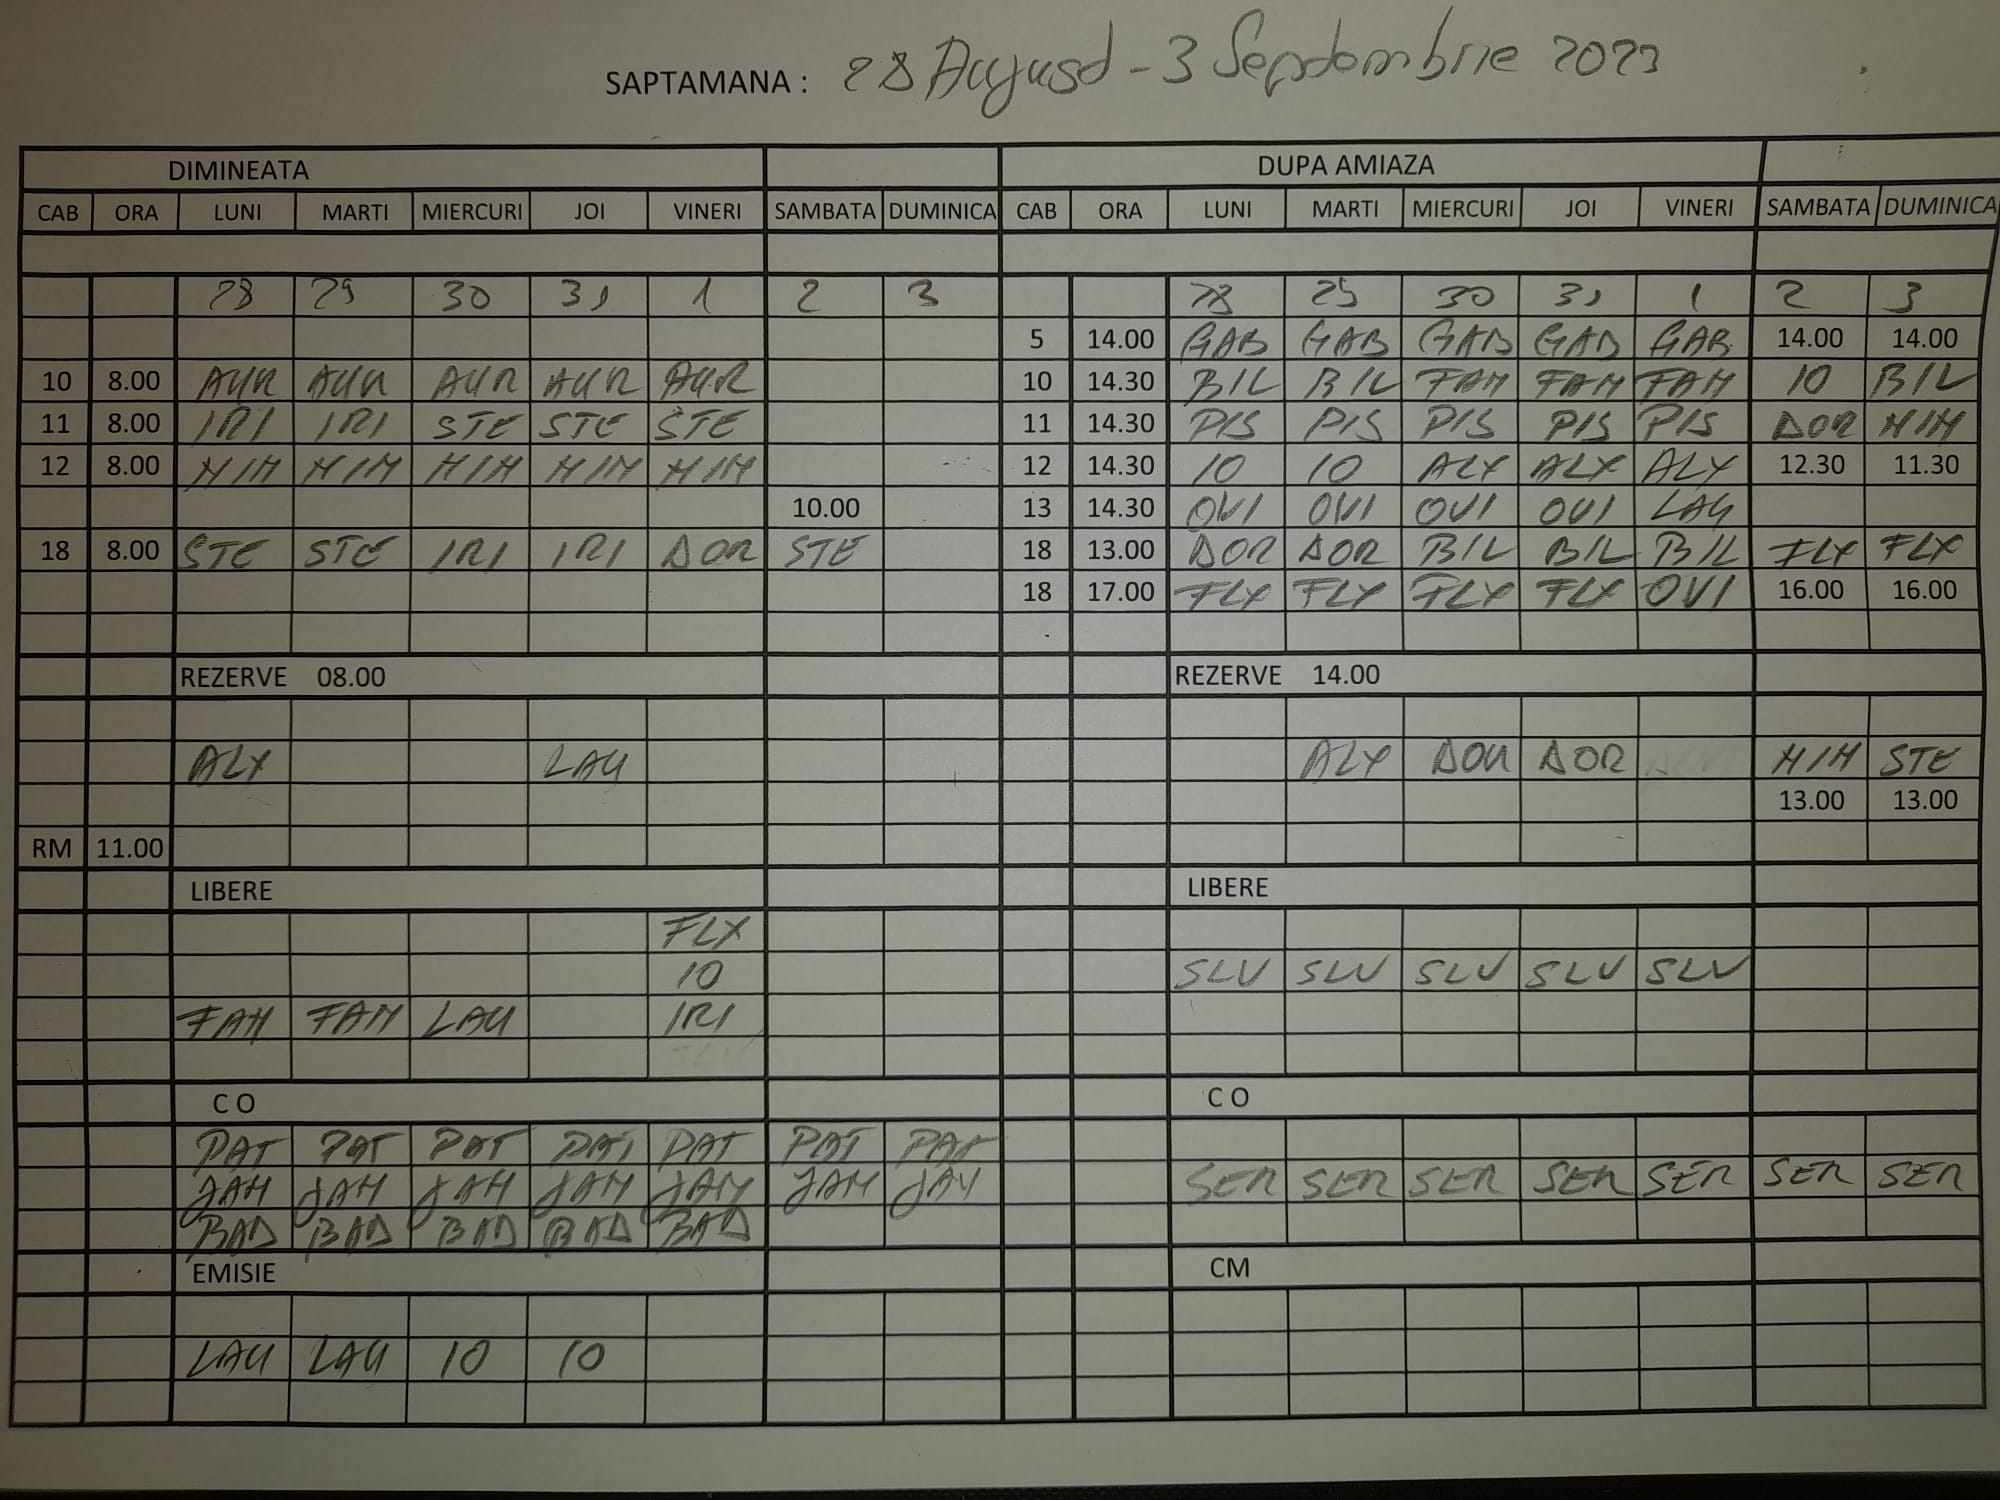 SAPTAMANA : 28 Augusd - 3 Sepdembrie 2023
DIMINEATA DUPA AMIAZA
CAB ORA LUNI MARTI MIERCURI JOI VINERI SAMBATA DUMINICA CAB ORA LUNI MARTI MIERCURI JOI VINERI SAMBATA DUMINICA
28 29 30 31 1 2 3 28 29 30 31 1 2 3
5 14.00 GAB GAB GAB GAB GAB 14.00 14.00
10 8.00 AUR AUR AUR AUR AUR 10 14.30 BIL BIL FAM FAM FAM 10 BIL
11 8.00 IRI IRI STE STE STE 11 14.30 PIS PIS PIS PIS PIS DOR MIM
12 8.00 MIM MIM MIM MIM MIM 12 14.30 10 10 ALX ALX ALX 12.30 11.30
10.00 13 14.30 OVI OVI OVI OVI LAU
18 8.00 STE STE IRI IRI DOR STE 18 13.00 DOR DOR BIL BIL BIL FLX FLX
18 17.00 FLX FLX FLX FLX OVI 16.00 16.00
REZERVE 08.00 REZERVE 14.00
ALX LAU ALX DOR DOR MIM STE
13.00 13.00
RM 11.00
LIBERE LIBERE
FLX
10 SLV SLV SLV SLV SLV
FAM FAM LAU IRI
C O C O
PAT PAT PAT PAT PAT PAT PAT
JAM JAM JAM JAM JAM JAM JAM SER SER SER SER SER SER SER
BAD BAD BAD BAD BAD
EMISIE CM
LAU LAU 10 10